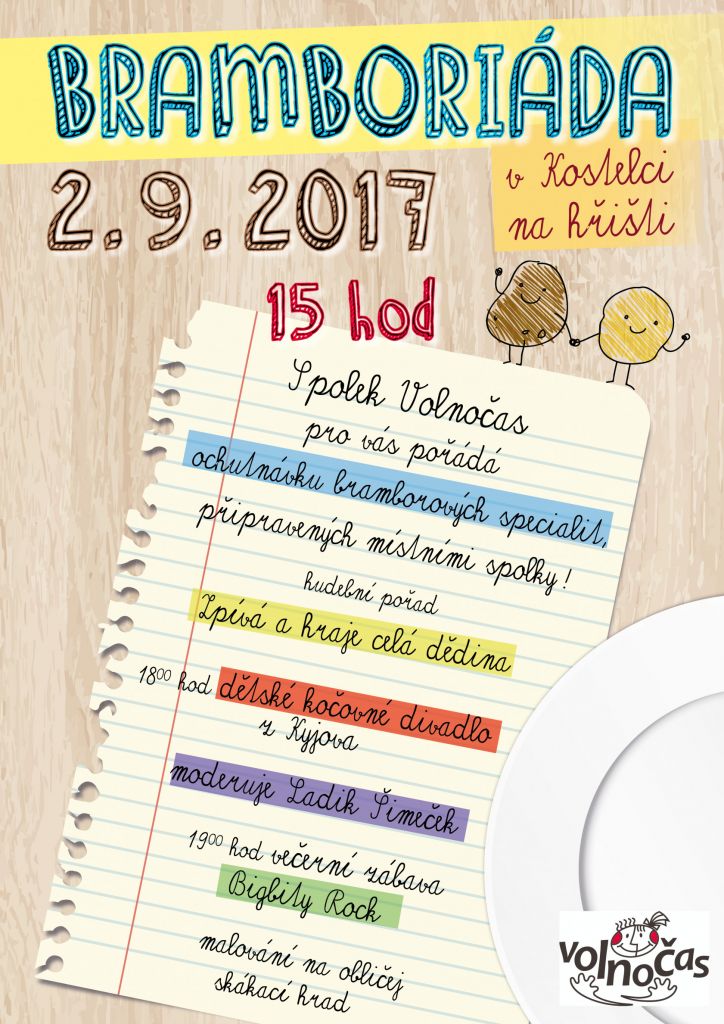 BRAMBORIÁDA
2.9.2017
v Kostelci
na hřišti
15 hod
Spolek Volnočas
pro vás pořádá
ochutnávku bramborových specialit,
připravených místními spolky!
hudební pořad
Zpívá a hraje celá dědina
18⁰⁰ hod dětské kočovné divadlo
z Kyjova
moderuje Ladik Šimeček
19⁰⁰ hod večerní zábava
Bigbíty Rock
malování na obličej
skákací hrad
volnočas